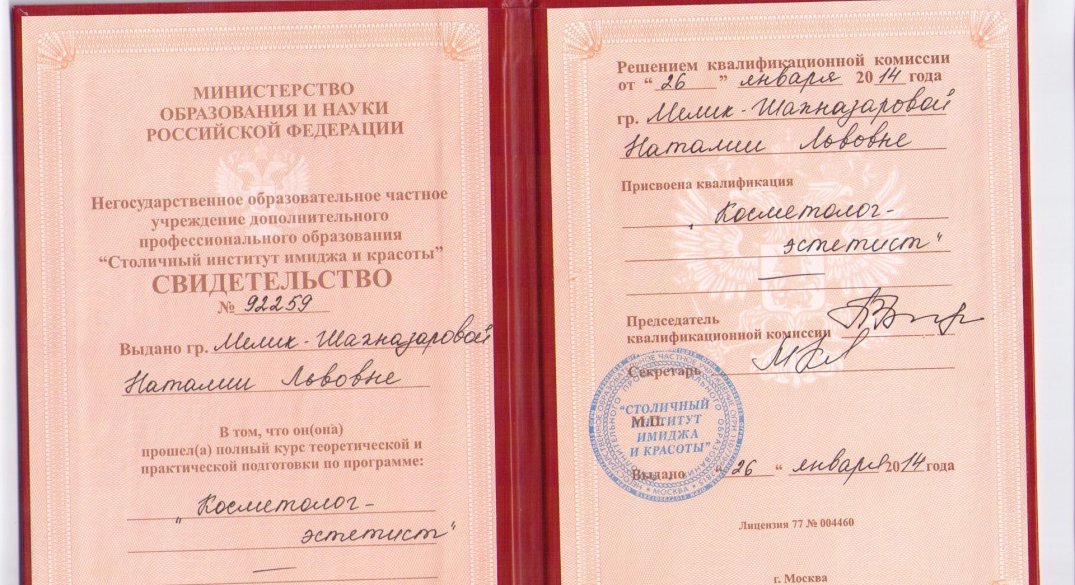 МИНИСТЕРСТВО
ОБРАЗОВАНИЯ И НАУКИ
РОССИЙСКОЙ ФЕДЕРАЦИИ
Негосударственное образовательное частное
учреждение дополнительного
профессионального образования
“Столичный институт имиджа и красоты”
СВИДЕТЕЛЬСТВО
№ 92259
Выдано гр. Мелик-Шахназаровой
Наталии Львовне
В том, что он(она)
прошел(а) полный курс теоретической и
практической подготовки по программе:
„Косметолог-
эстетист“
Решением квалификационной комиссии
от “ 26 ” января 2014 года
гр. Мелик-Шахназаровой
Наталии Львовне
Присвоена квалификация
„Косметолог-
эстетист“
Председатель
квалификационной комиссии
Секретарь
“СТОЛИЧНЫЙ
ИНСТИТУТ
ИМИДЖА
И КРАСОТЫ”
МОСКВА
М.П.
Выдано “ 26 “ января 2014 года
Лицензия 77 № 004460
г. Москва